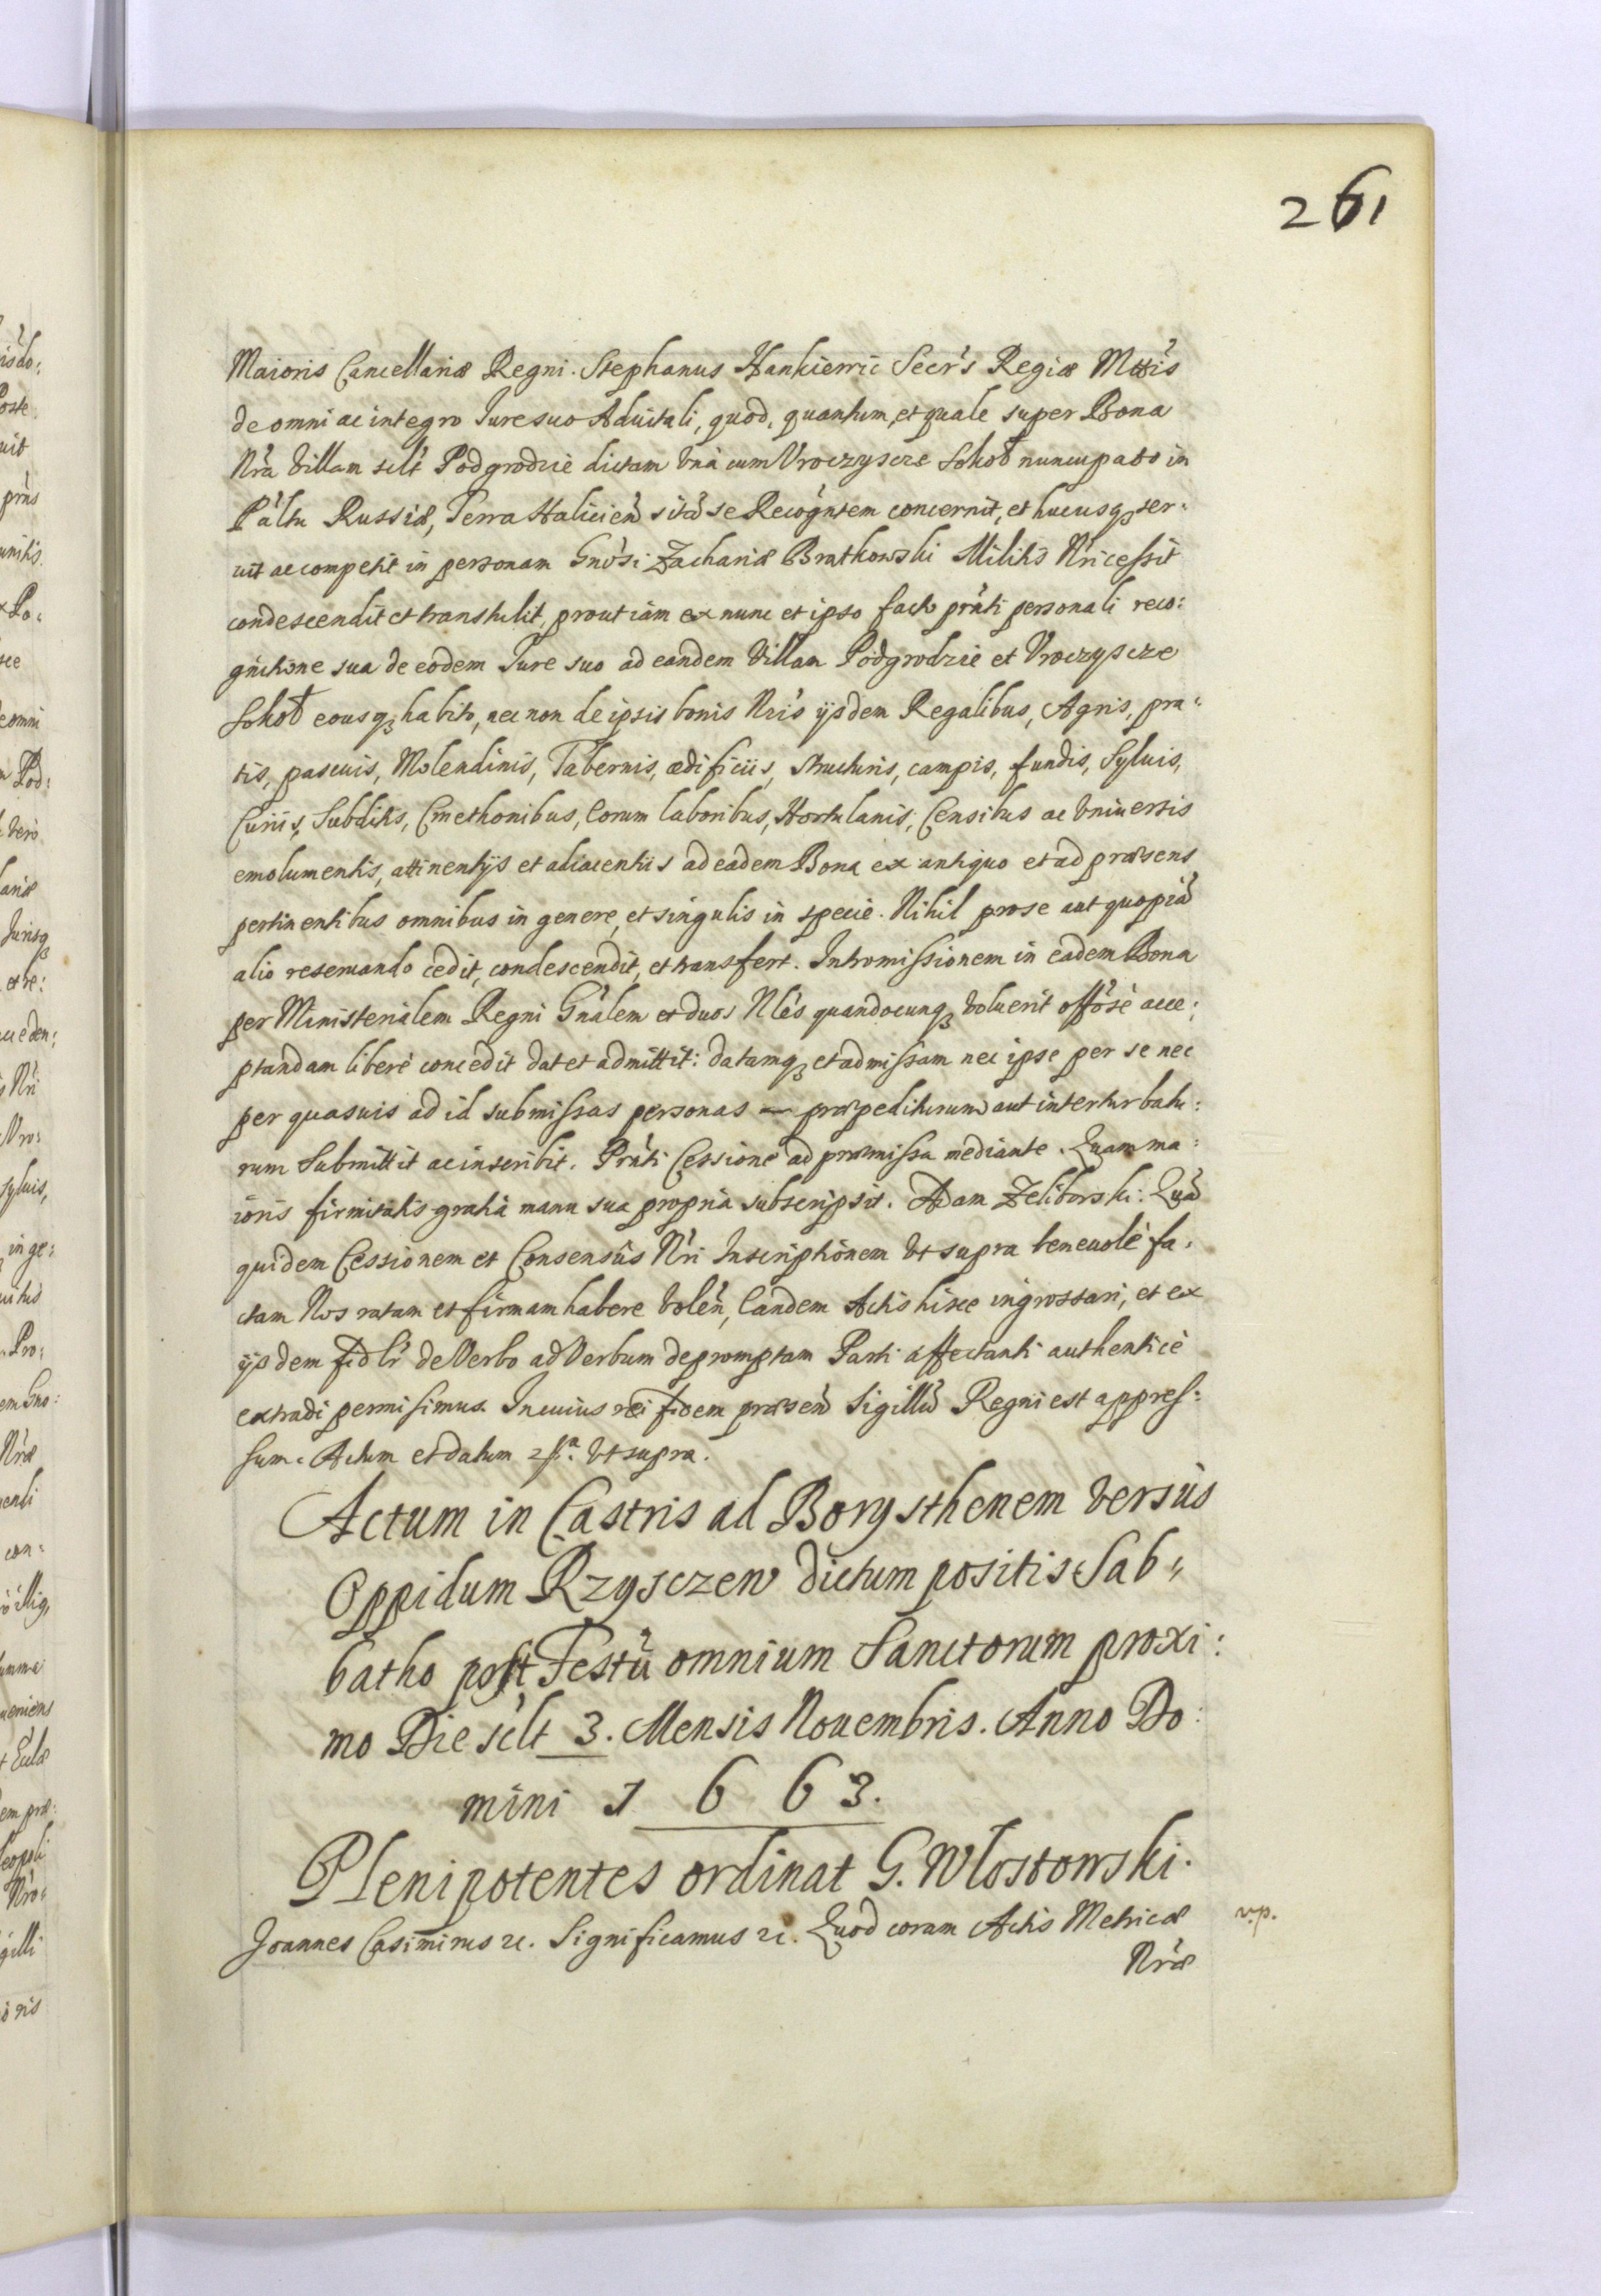 261
Maioris Cancellariæ Regni. Stephanus Hankiewic Secr's Regiæ Mttis
de omni ac integro Iure suo Aduitali, quod, quantum, et quale super Bona
Nr'a Villam sclt Podgrodzie dictam Vnà cum Vroczyscze Sokoł nuncupato in
Pa'ltu Russiæ, Terra Halicien sitã se Recogn'tem concernit, et hucusq; ser:
uit ac competit in personam Gno'si Zachariæ Bratkowski Militis Nr'i cessit
condescendit et transtulit, prout iam ex nunc et ipso facto prn'ti personali reco:
gnitione sua de eodem Iure suo ad eandem Villam Podgrodzie et Vroczyscze
Sokoł eousq; habito, nec non de ipsis bonis Nr'is ijsdem Regalibus, Agris, pra:
tis, pascuis, Molendinis, Tabernis, ædificiis, structuris, campis, fundis, Syluis,
Curiis, Subditis, Cmethonibus, Eorum laboribus, Hortulanis, Censibus ac Vniuersis
emolumentis, attinentijs et adiacentiis ad eadem Bona ex antiquo et ad præsens
pertinentibus omnibus in genere, et singulis in specie. Nihil pro se aut quopiã
alio reseruando cedit, condescendit, et transfert. Intromissionem in eadem Bona
per Ministerialem Regni Gn'alem et duos Nle's quandocunq; voluerit offo'sè acce:
ptandam liberè concedit dat et admittit: datamq; et admissam nec ipse per se nec
per quasuis ad id submissas personas — præpediturum aut interturbatu:
rum Submittit ac inscribit. Prn'ti Cessione ad præmissa mediante. Quam ma:
ioris firmitatis gratiâ manu sua propria subscripsit. Adam Zeliborski. Quã
quidem Cessionem et Consensûs Nr'i Inscriptionem Vt supra beneuolè fa:
ctam Nos ratam et firmam habere volen, Eandem Actis hisce ingrossari, et ex
ijsdem fidlr' de Verbo ad Verbum depromptam Parti affectanti authenticè
extradi permisimus. In cuius rei fidem præsen Sigillũ Regni est appres:
sum. Actum et datum Vt supra.
Actum in Castris ad Borysthenem versùs
Oppidum Rzysczew dictum positis Sab„
batho post Festũ omnium Sanctorum proxi:
mo Die sclt 3. Mensis Nouembris. Anno Do:
mini 1663.
Plenipotentes ordinat G. Wlostowski.
Joannes Casimirus &c. Significamus &c. Quod coram Actis Metricæ v.p.
Nr'æ